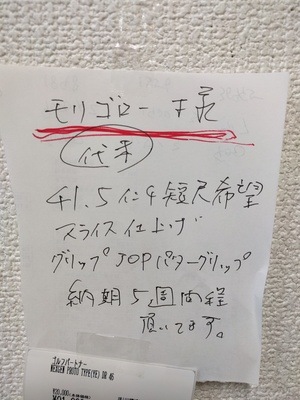 モリゴロー 様
代車
41.5インチ 短尺希望
スライス仕上げ
グリップ JOPパターグリップ
納期5週間程
頂いてます。
ゴルフパートナー
NEXGEN PROTO TYPE(YE) DR 45